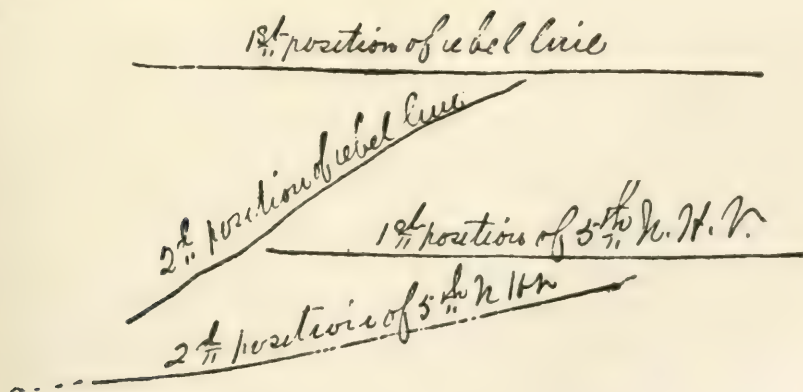 1st position of rebel line
2d position of rebel line
1st position of 5th N. H. V.
2d position of 5th N H V